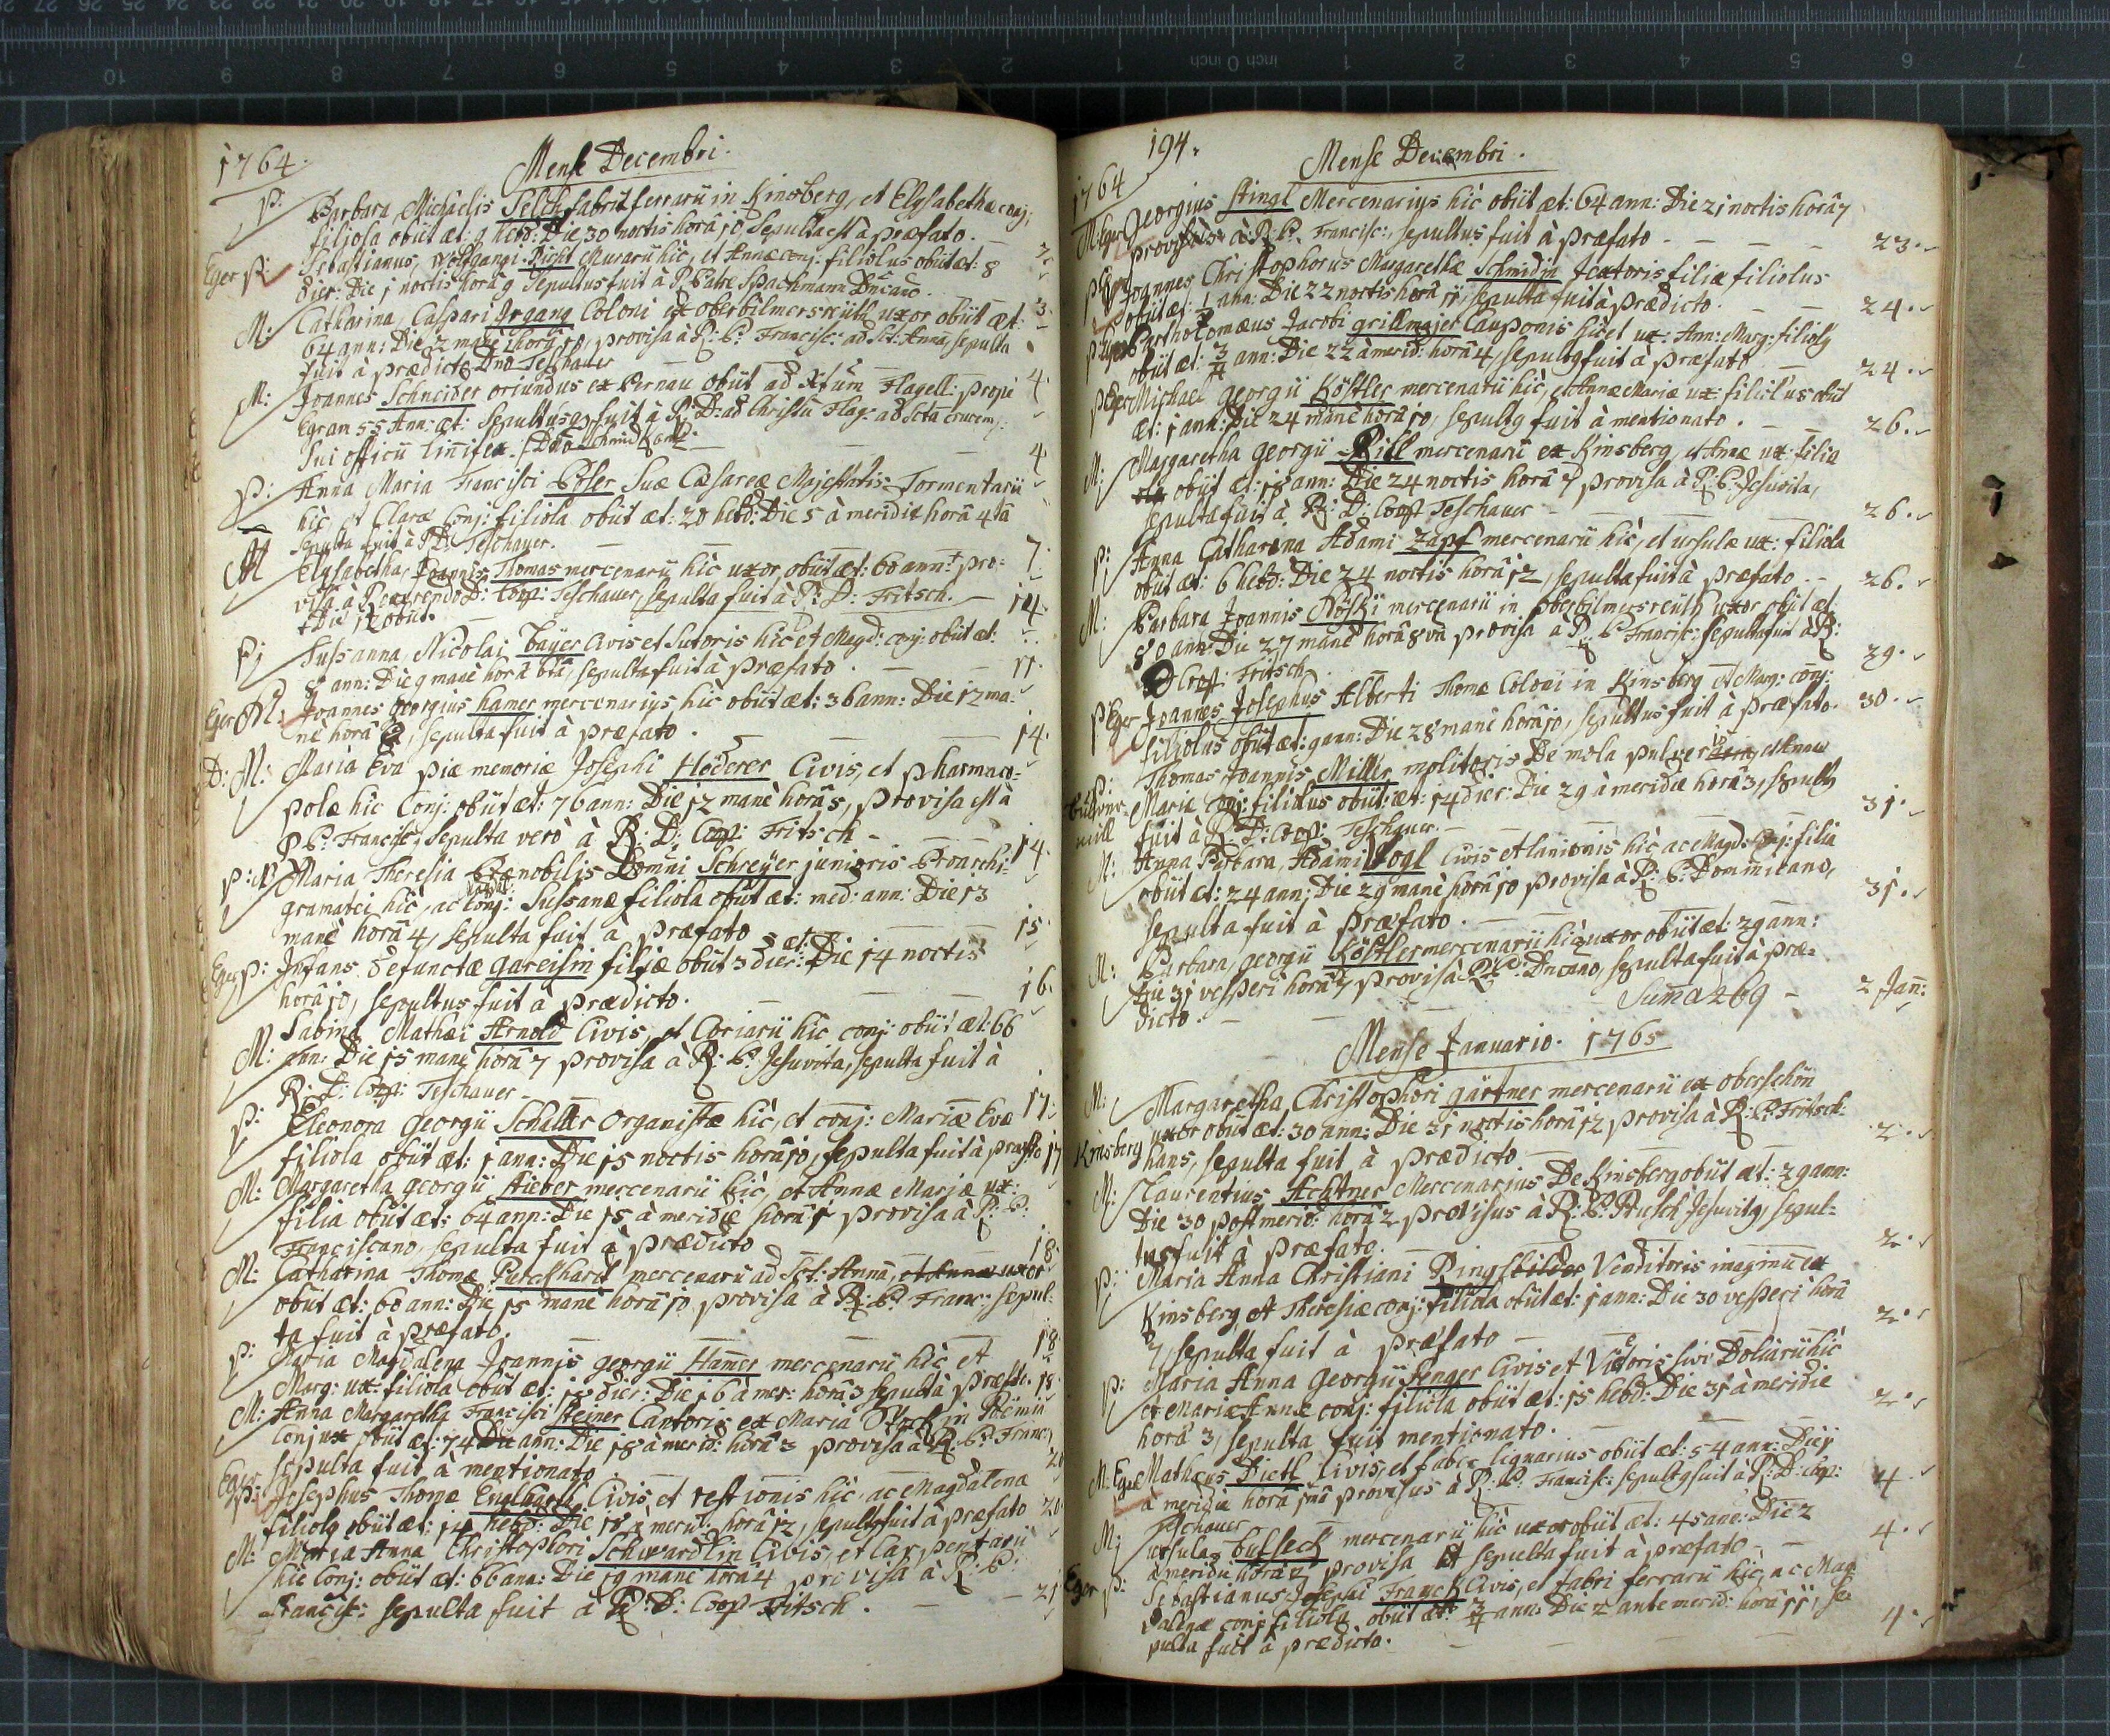 1764.
Mense Decembri.
P: Barbara, Michaelis Selch fabri ferrarii in Kinsberg, et Elysabethæ conj:
filiola obiit æt: 9 hebd: Die 30 noctis horâ 10 Sepulta est à præfato.
Eger P: Sebastianus, Wolffgangi Murarii hic, et Annæ conj: filiolus obiit æt: 8
dier: Die 1 noctis horâ 9 Sepultus fuit à P. Patre Spachmann
M: Catharina, Caspari Irgang Coloni ex oberbilmersreuth uxor obiit æt: 3.
64 ann: Die 2 mane hora 10, provisa à R: P: Francisc: ad Sct: Anna, sepulta
fuit à prædicto Dno Teschauer
M: Joannes Schneider oriundus ex Pernau obiit ad Xtum Flagell: propè 4.
Egram 55 Ann: æt: Sepultus fuit à R: D: ad Christū Flag: ad Scta Crucem;
Sui officii linifex.
P: Anna Maria Francisci Pöser Suæ Cæsareæ Majestatis Tormentarii 4
hic, et Claræ Conj: filiola obiit æt: 20 hebd: Die 5 à meridie horâ 4tâ
sepulta fuit à P: D: Teschauer.
M Elysabetha, Joannis Thomas mercenarii hic uxor, obiit æt: 60 ann: pro- 7.
visa à Reverendo D: Coop: Teschauer, sepulta fuit à P: D: Fritsch.
+ Die 12 obiit. 14.
P: Sussanna, Nicolai Bayer Civis et Sutoris hic et Magd: conj: obiit æt:
8 ann: Die 9 manè horâ 6tâ, sepulta fuit à præfato. 11.
Eger M. Joannes Georgius Hamer mercenarius hic obiit æt: 36 ann: Die 12 ma-
nè horâ 2, sepulta fuit à præfato. 14.
D: M: Maria Eva piæ memoriæ Josephi Höderer Civis, et pharmaco-
polæ hic Conj: obiit æt: 76 ann: Die 12 manè horâ 5, provisa est à
P P: Francisc, sepulta verò à R: D: Coop: Fritsch - 14.
P: M Maria Theresia Prænobilis Domini Schreyer junioris Proarchi-
gramatei hic, ac conj: Sussanæ filiola obiit æt: med: ann: Die 13
manè horâ 4, sepulta fuit à præfato 15
Eger P: Infans defunctæ Gareisin filiæ obiit æt: 3 dier: Die 14 noctis
horâ 10, sepultus fuit à prædicto. 16.
M: Sabina Mathæi Arnold Civis, et Coriarii hic conj: obiit æt: 66
ann: Die 15 manè horâ 7 provisa à R: P: Jesuvita, sepulta fuit à
R: D: Coop: Teschauer - 17.
P: Eleonora Georgii Schaller Organistæ hic, et conj: Mariæ Evæ
filiola obiit æt: 1 ann: Die 15 noctis horâ 10, sepulta fuit à præfto 17
M: Margaretha Georgii Stieber mercenarii hic, et Annæ Mariæ ux:
filia obiit æt: 64 ann: Die 15 à meridie horâ 1 provisa à R: P:
Franciscano, sepulta fuit à prædicto 18.
M: Catharina Thomæ Purckhard mercenarii ad Sct: Annā, et Annæ uxor
obiit æt: 60 ann: Die 15 manè horâ 10 provisa à R: P: Franc: sepul-
ta fuit à præfato. 18.
P: Maria Magdalena Joannis Georgii Hamer mercenarii hic et
Marg: ux: filiola obiit æt: 15 dier: Die 16 à mer: horâ 3 sepulta à præfdto. 18
M: Anna Margaretha Francisci Steiner Cantoris ex Maria Stock in Böemia
Conjux obiit æt: 74 ann: Die 18 à merid: horâ 3 provisa à R: P: Franc:
sepulta fuit à mentionato 20
Eger P: Josephus Thomæ Englharth Civis et restionis hic, ac Magdalena
filiolq obiit æt: 14 hebd: Die 18 à merid: horâ 12, sepultq fuit à præfato 20.
M: Maria Anna Christophori Schwardlin Civis, et Carpentarii
hic Conj: obiit æt: 66 ann: Die 19 manè horâ 4 provisa à R: P:
Francisc: sepulta fuit à R: D: Coop Fritsch. 21
194.
Mense Decembri.
1764
M: Eger Georgius Stingl Mercenarius hic obiit æt: 64 ann: Die 21 noctis horâ 7
provisus à R: P: Francisc:, sepultus fuit à præfato 23.
P: Joannes Christophorus Margarethæ Schmidin Textoris filiæ filiolus
obiit æt: ann: Die 22 noctis horâ 11, sepulta fuit à prædicto. 24.
P: Eger Bartholomæus Jacobi Grillmajer Cauponis hic et ux: Ann: Marg: filiolq
obiit æt: 3/4 ann: Die 22 à merid: horâ 4, sepultq fuit à præfato 24.
P: Eger Michael Georgii Köstler mercenarii hic, et Annæ Mariæ ux: filiolus obiit
æt: 1 ann: Die 24 manè horâ 10, sepultq fuit à mentionato. 26.
M: Margaretha Georgii Ritl mercenarii ex Kinsberg, et Annæ ux: filia
obiit æt: 18 ann: Die 24 noctis horâ 7 provisa à R: P: Jesuvita,
sepulta fuit à R: D: Coop Teschauer 26.
P: Anna Catharina Adami Zapf mercenarii hic, et ursulæ ux: filiola
obiit æt: 6 hebd: Die 24 noctis horâ 12, sepulta fuit à præfato. 26.
M: Barbara Joannis Röskj mercenarii in Oberbilmersreuth uxor obiit æt:
80 ann: Die 27 manè horâ 8va provisa à P: P: Francisc: sepulta fuit à R:
D Coop: Fritsch. 29.
P: Eger Joannes Josephus Alberti Thomæ Coloni in Kinsberg et Marg: conj:
filiolus obiit æt: 9 ann: Die 28 manè horâ 10, sepultus fuit à præfato. 30.
P: Thomas Joannis Miller molitoris De mola pulveria, et Annæ
Mariæ conj: filiolus obiit æt: 14 dier: Die 29 à meridie horâ 3, sepultq
mill fuit à R: D: Coop: Teschauer. 31.
M: Anna Barbara, Adami Vogl Civis et lanionis hic ac Magd: conj: filia
obiit æt: 24 ann: Die 29 manè horâ 10 provisa à R: P: Dominicano,
sepulta fuit à præfato. 31.
M: Barbara, Georgii Köstler mercenarii hic uxor obiit æt: 29 ann:
Die 31 vesperi horâ 7 provisa à P: P: Dnicano, sepulta fuit à præ-
dicto. Suma 269 - 2 Jan:
Mense Januario. 1765
M: Margaretha Christophori Gärtner mercenarii ex oberschön
uxor obiit æt: 30 ann: Die 31 noctis horâ 12 provisa à R: P: Fritsch:
Kinsberg hans, sepulta fuit à prædicto 2.
M: Laurentius Achtner Mercenarius De Kinsberg obiit æt: 29 ann:
Die 30 post merid: horâ 2 provisus à R: P: Rusch Jesuvitq, sepul-
tus fuit à præfato. 2.
P: Maria Anna Christiani Ringsbilder Venditoris imaginū ex
Kinsberg et Theresiæ conj: filiola obiit æt: 1 ann: Die 30 vesperi horâ
7, sepulta fuit à præfato 2.
P: Maria Anna Georgii Senger Civis et Viëtoris sivè Doliarii hic
et Mariæ Annæ conj: filiola obiit æt: 15 hebd: Die 31 à meridie
horâ 3, sepulta fuit mentionato. 2.
M. Egræ Mathæus Dietl Civis, et faber lignarius obiit æt: 54 ann: Die 1
à meridie horâ 1mâ provisus à R: P: Francisc: sepultq fuit à R: D: Coop: 4
Teschauer
M: Ursula, Busseck mercenarii hic uxor obiit æt: 45 ann: Die 2
à meridie horâ 2 provisa et sepulta fuit à præfato 4.
Eger P: Sebastianus Josephi Franck Civis, et fabri ferrarii hic, ac Mag-
dalenæ conj: filiolq obiit æt: 3/4 ann: Die 2 ante merid: horâ 11, se-
pulta fuit à prædicto. 4.